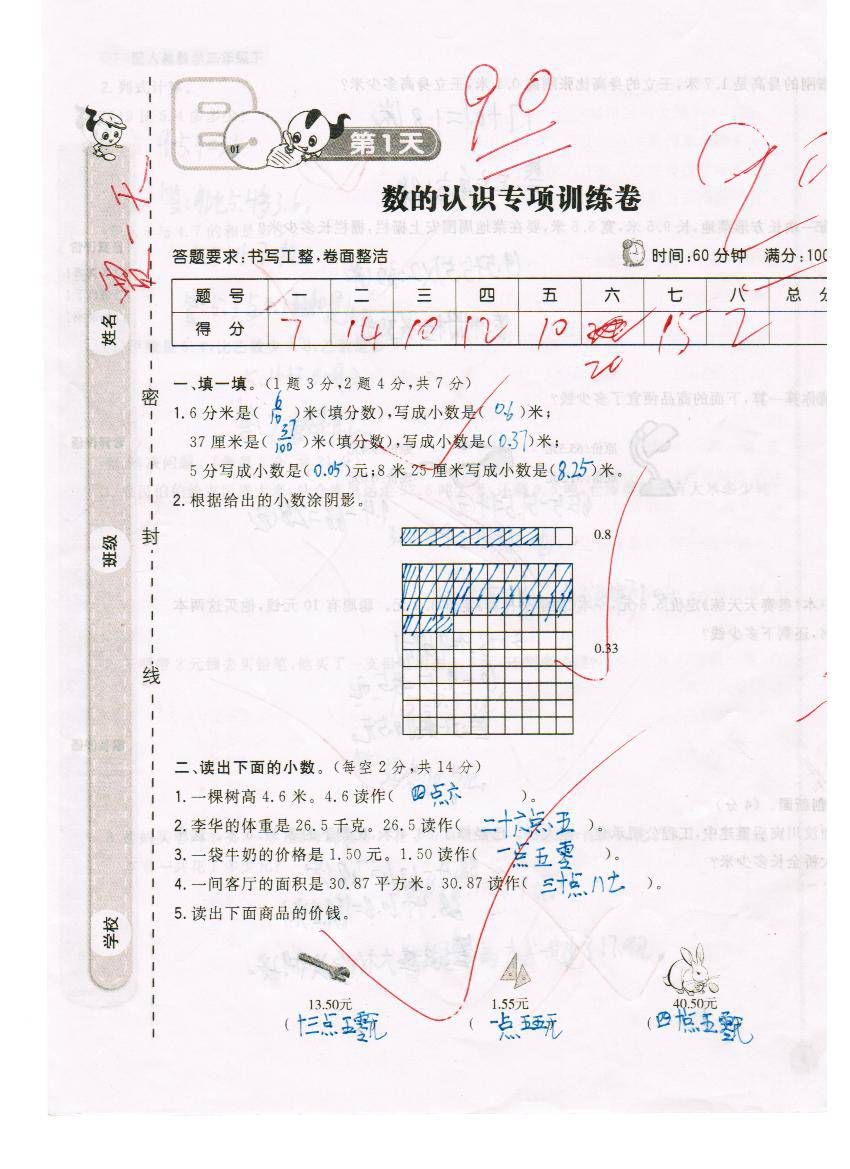 90
01 第1天
90
数的认识专项训练卷
答题要求:书写工整,卷面整洁 时间:60分钟 满分:100
题 号 二 三 四 五 六 七 八 总
得 分 7 14 10 12 10 20 15 2
一、填一填。(1题3分,2题4分,共7分)
1. 6分米是( 6/10 )米(填分数),写成小数是( 0.6 )米;
37厘米是( 37/100 )米(填分数),写成小数是( 0.37 )米;
5分写成小数是( 0.05 )元;8米25厘米写成小数是( 8.25 )米。
2. 根据给出的小数涂阴影。
0.8
0.33
二、读出下面的小数。(每空2分,共14分)
1. 一棵树高4.6米。4.6读作( 四点六 )。
2. 李华的体重是26.5千克。26.5读作( 二十六点五 )。
3. 一袋牛奶的价格是1.50元。1.50读作( 一点五零 )。
4. 一间客厅的面积是30.87平方米。30.87读作( 三十点八七 )。
5. 读出下面商品的价钱。
13.50元 1.55元 40.50元
( 十三点五零元 ( 一点五五元 ( 四十点五零元
姓名
班级
学校
密
封
线
第一天